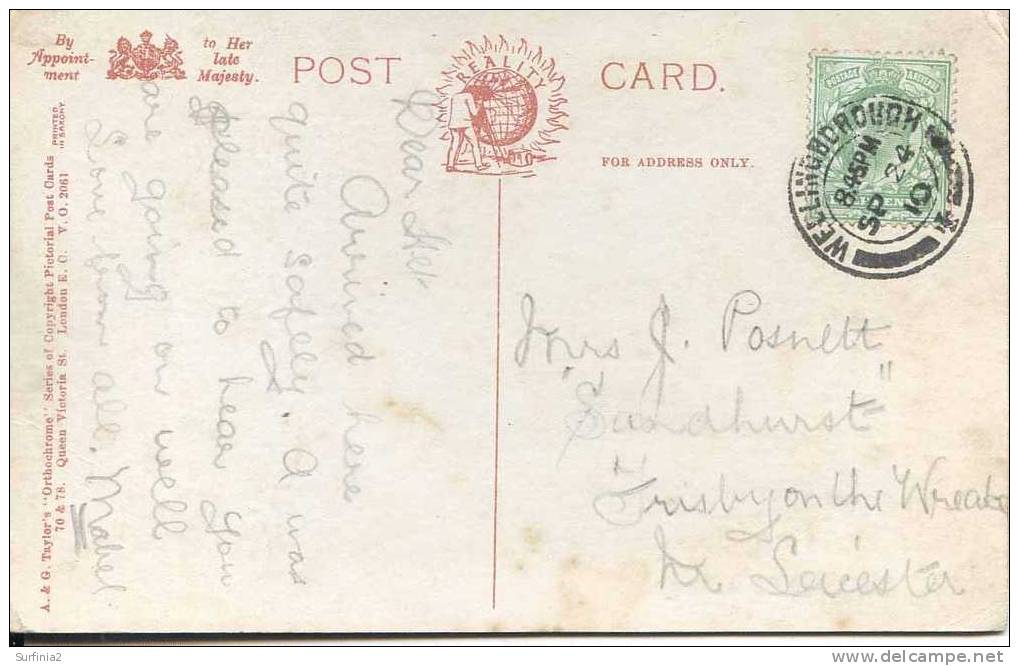 By
Appoint-
ment
to Her
late
Majesty.
POST CARD.
REALITY
FOR ADDRESS ONLY.
POSTAGE REVENUE
WELLINGBOROUGH
8.45PM
SP 24
10
A. & G. Taylor's "Orthochrome" Series of Copyright Pictorial Post Cards
PRINTED
IN SAXONY
70 & 78. Queen Victoria St. London E. C. V. O. 2061
Dear
Arrived here
quite safely. I was
pleased to hear you
are going on well
Love from all. Mabel.
Mrs J. Posnett
"Sandhurst"
Frisby on the Wreake
Nr Leicester
Surfinia2